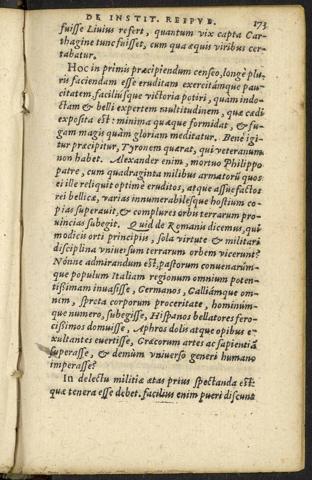 DE INSTIT. REIPVB. 173
fuisse Liuius refert, quantum vix capta Car-
thagine tunc fuisset, cum qua æquis viribus cer-
tabatur.
Hoc in primis præcipiendum censeo, longè plu-
ris faciendam esse eruditam exercitámque pau-
citatem, faciliúsque victoria potiri, quàm indo-
ctam & belli expertem multitudinem, quæ cædi
exposita est: minimâ quæque formidat, & fu-
gam magis quàm gloriam meditatur. Bene igi-
tur præcipitur, Tyronem quærat, qui veteranum
non habet. Alexander enim, mortuo Philippo
patre, cum quadraginta milibus armatorũ quos
ei ille reliquit optimè eruditos, atque assuefactos
rei bellicæ, varias innumerabilesque hostium co-
pias superauit, & complures orbis terrarum pro-
uincias subegit. Quid de Romanis dicemus, qui
modicis orti principiis, sola virtute & militari
disciplina vniuersum terrarum orbem vicerunt?
Nónne admirandum est, pastorum conuenarúm-
que populum Italiam regionum omnium poten-
tissimam inuasisse, Germanos, Galliámque om-
nem, spreta corporum proceritate, hominúm-
que numero, subegisse, Hispanos bellatores fero-
cissimos domuisse, Aphros dolis atque opibus e-
xultantes euertisse, Græcorum artes ac sapientiã
superasse, & demùm vniuerso generi humano
imperasse?
In delectu militiæ ætas prius spectanda est:
quæ tenera esse debet. facilius enim pueri discunt